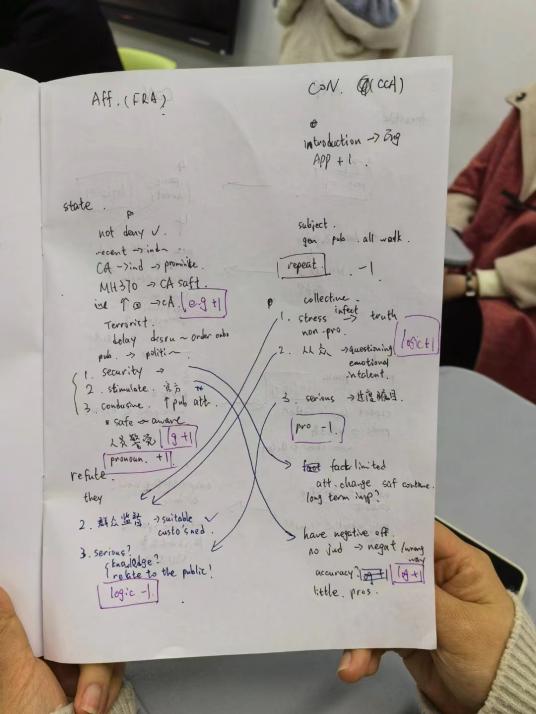 Aff. (FRA)
state.
not deny ✓.
recent → ind~
CA → ind → promin
MH370 → CA saft.
↑ → CA. e.g +1
Terrorist.
delay disru ~ order
pub. → politi~.
1. security →
2. stimulate. 官方
3. condusive. ↑ pub att.
* safe → aware
人员警觉 lg +1
pronoun. +1
refute.
they
2. 群众监督 → suitable ✓
custo'sned.
3. serious?
knowledge?
relate to the public!
logic -1
CON. (CCA)
introduction → Eng
APP +1.
subject.
gen. pub. all walk.
repeat. -1
collective.
1. stress infect → truth
non-pro.
logic +1
2. 从众 → questioning
emotional
3. serious → 过度
pro -1.
fact limited
att. change saf continue.
long term imp?
have negative off.
no jud → negat / wrong way
accuracy? lg +1
little. pros.